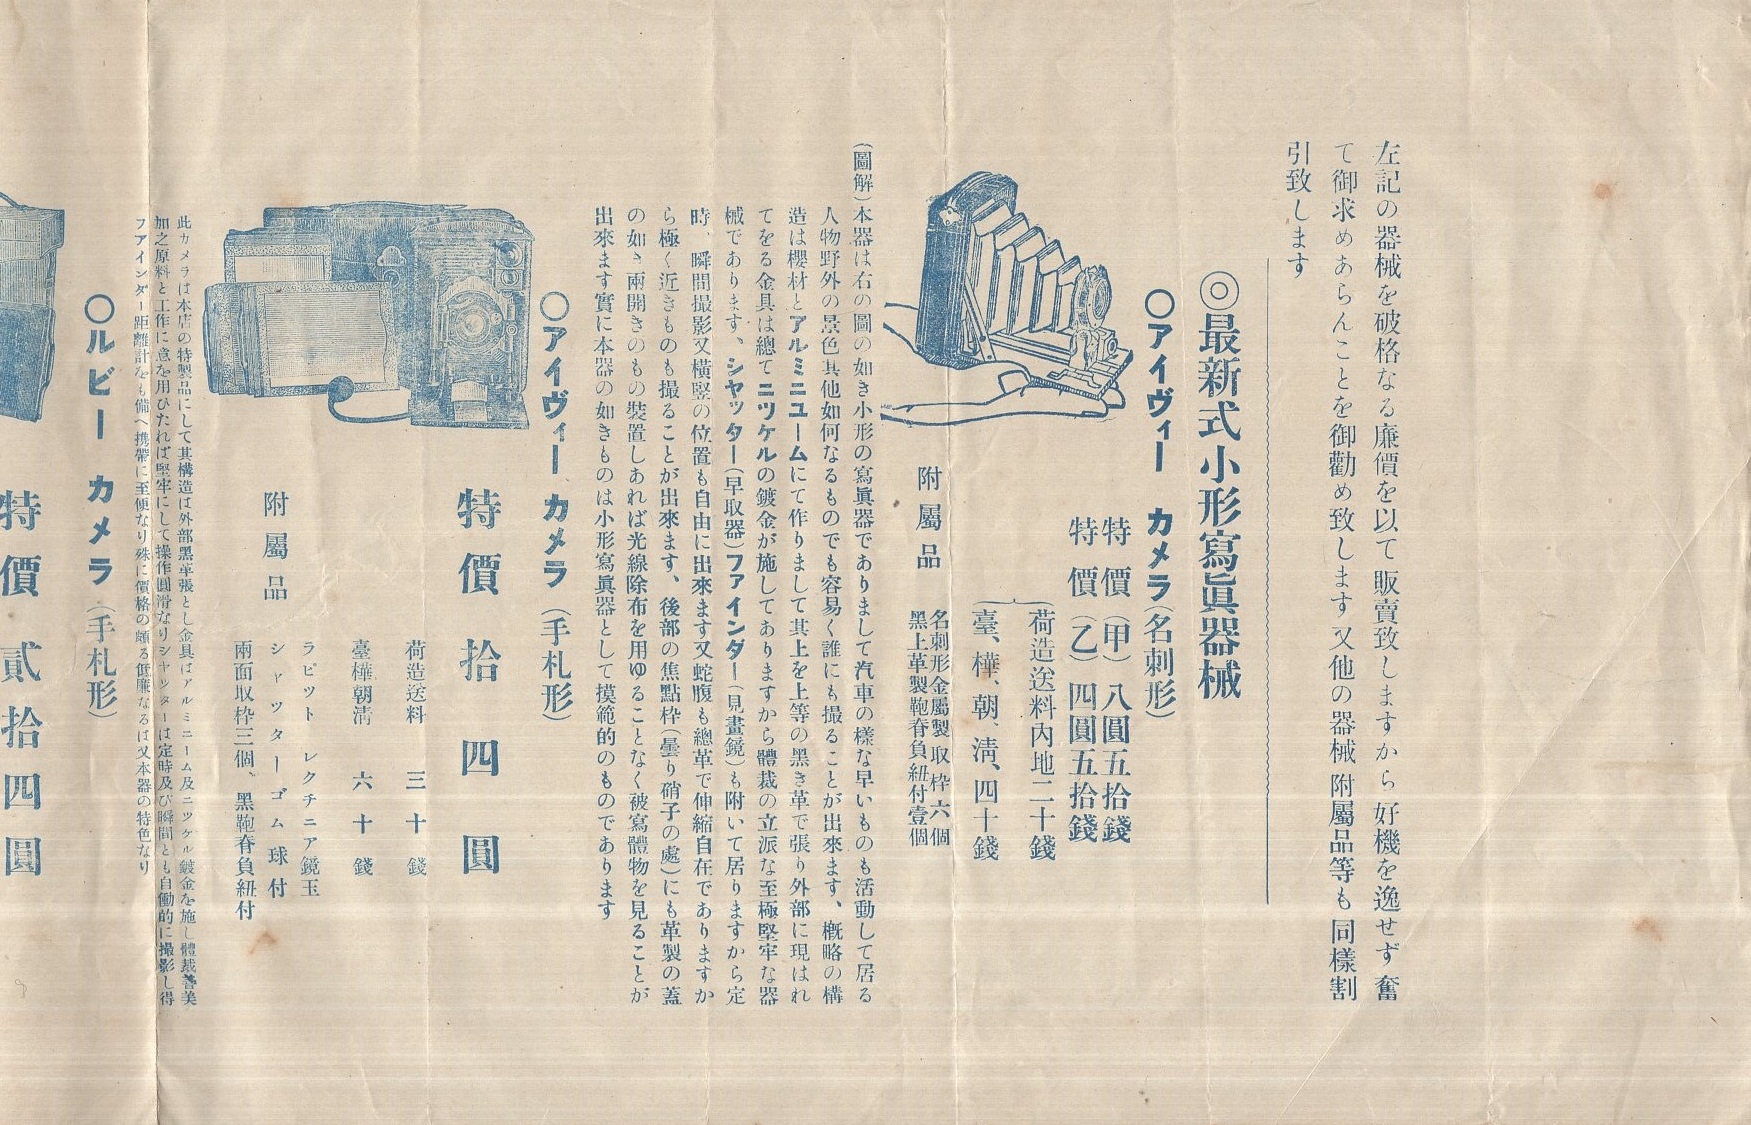 左記の器械を破格なる廉價を以て販賣致しますから好機を逸せず奮
て御求めあらんことを御勸め致します又他の器械附屬品等も同樣割
引致します
◎最新式小形寫眞器械
○アイヴィー カメラ(名刺形)
特價(甲)八圓五拾錢
特價(乙)四圓五拾錢
荷造送料内地二十錢
臺、樺、朝、淸、四十錢
附屬品
名刺形金屬製取枠六個
黑上革製鞄脊負紐付壹個
(圖解)本器は右の圖の如き小形の寫眞器でありまして汽車の樣な早いものも活動して居る
人物野外の景色其他如何なるものでも容易く誰にも撮ることが出來ます、概略の構
造は櫻材とアルミニユームにて作りまして其上を上等の黑き革で張り外部に現はれ
てをる金具は總てニツケルの鍍金が施してありますから體裁の立派な至極堅牢な器
械であります、シヤッター(早取器)ファインダー(見畫鏡)も附いて居りますから定
時、瞬間撮影又橫竪の位置も自由に出來ます又蛇腹も總革で伸縮自在でありますか
ら極く近きものも撮ることが出來ます、後部の焦點枠(曇り硝子の處)にも革製の蓋
の如き兩開きのもの裝置しあれば光線除布を用ゆることなく被寫體物を見ることが
出來ます實に本器の如きものは小形寫眞器として摸範的のものであります
○アイヴィー カメラ(手札形)
特價拾四圓
荷造送料 三十錢
臺樺朝淸 六十錢
附屬品
ラピツト レクチニア鏡玉
シャツターゴム球付
兩面取枠三個、黑鞄脊負紐付
此カメラは本店の特製品にして其構造は外部黑革張とし金具はアルミニーム及ニツケル鍍金を施し體裁善美
加之原料と工作に意を用ひたれば堅牢にして操作圓滑なりシャッターは定時及び瞬間とも自働的に撮影し得
フアインダー距離計をも備へ携帶に至便なり殊に價格の頗る低廉なるは又本器の特色なり
○ルビー カメラ(手札形)
特價貳拾四圓